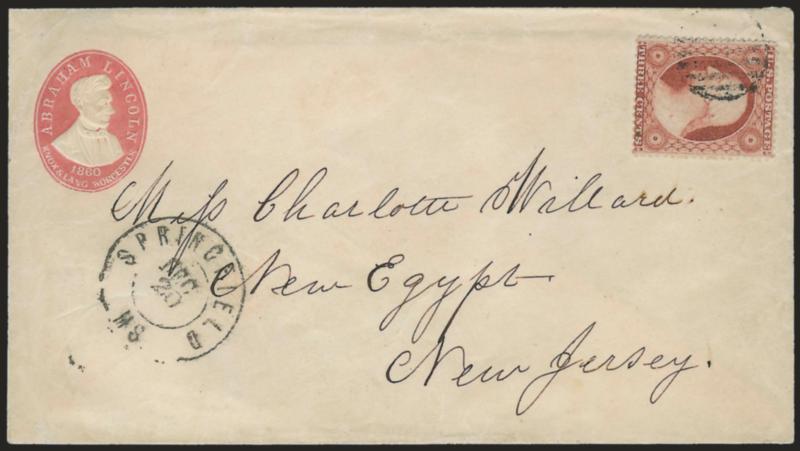 ABRAHAM LINCOLN
1860
KNOX & LANG WORCESTER
U.S. POSTAGE
THREE CENTS
Miss Charlotte Willard.
New Egypt
New Jersey.
SPRINGFIELD
DEC
20